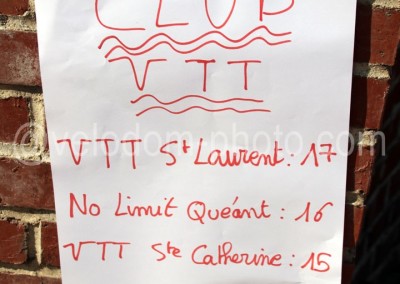 CLUB
VTT
VTT St Laurent : 17
No Limit Quéant : 16
VTT Ste Catherine : 15
@velodom-photo.com